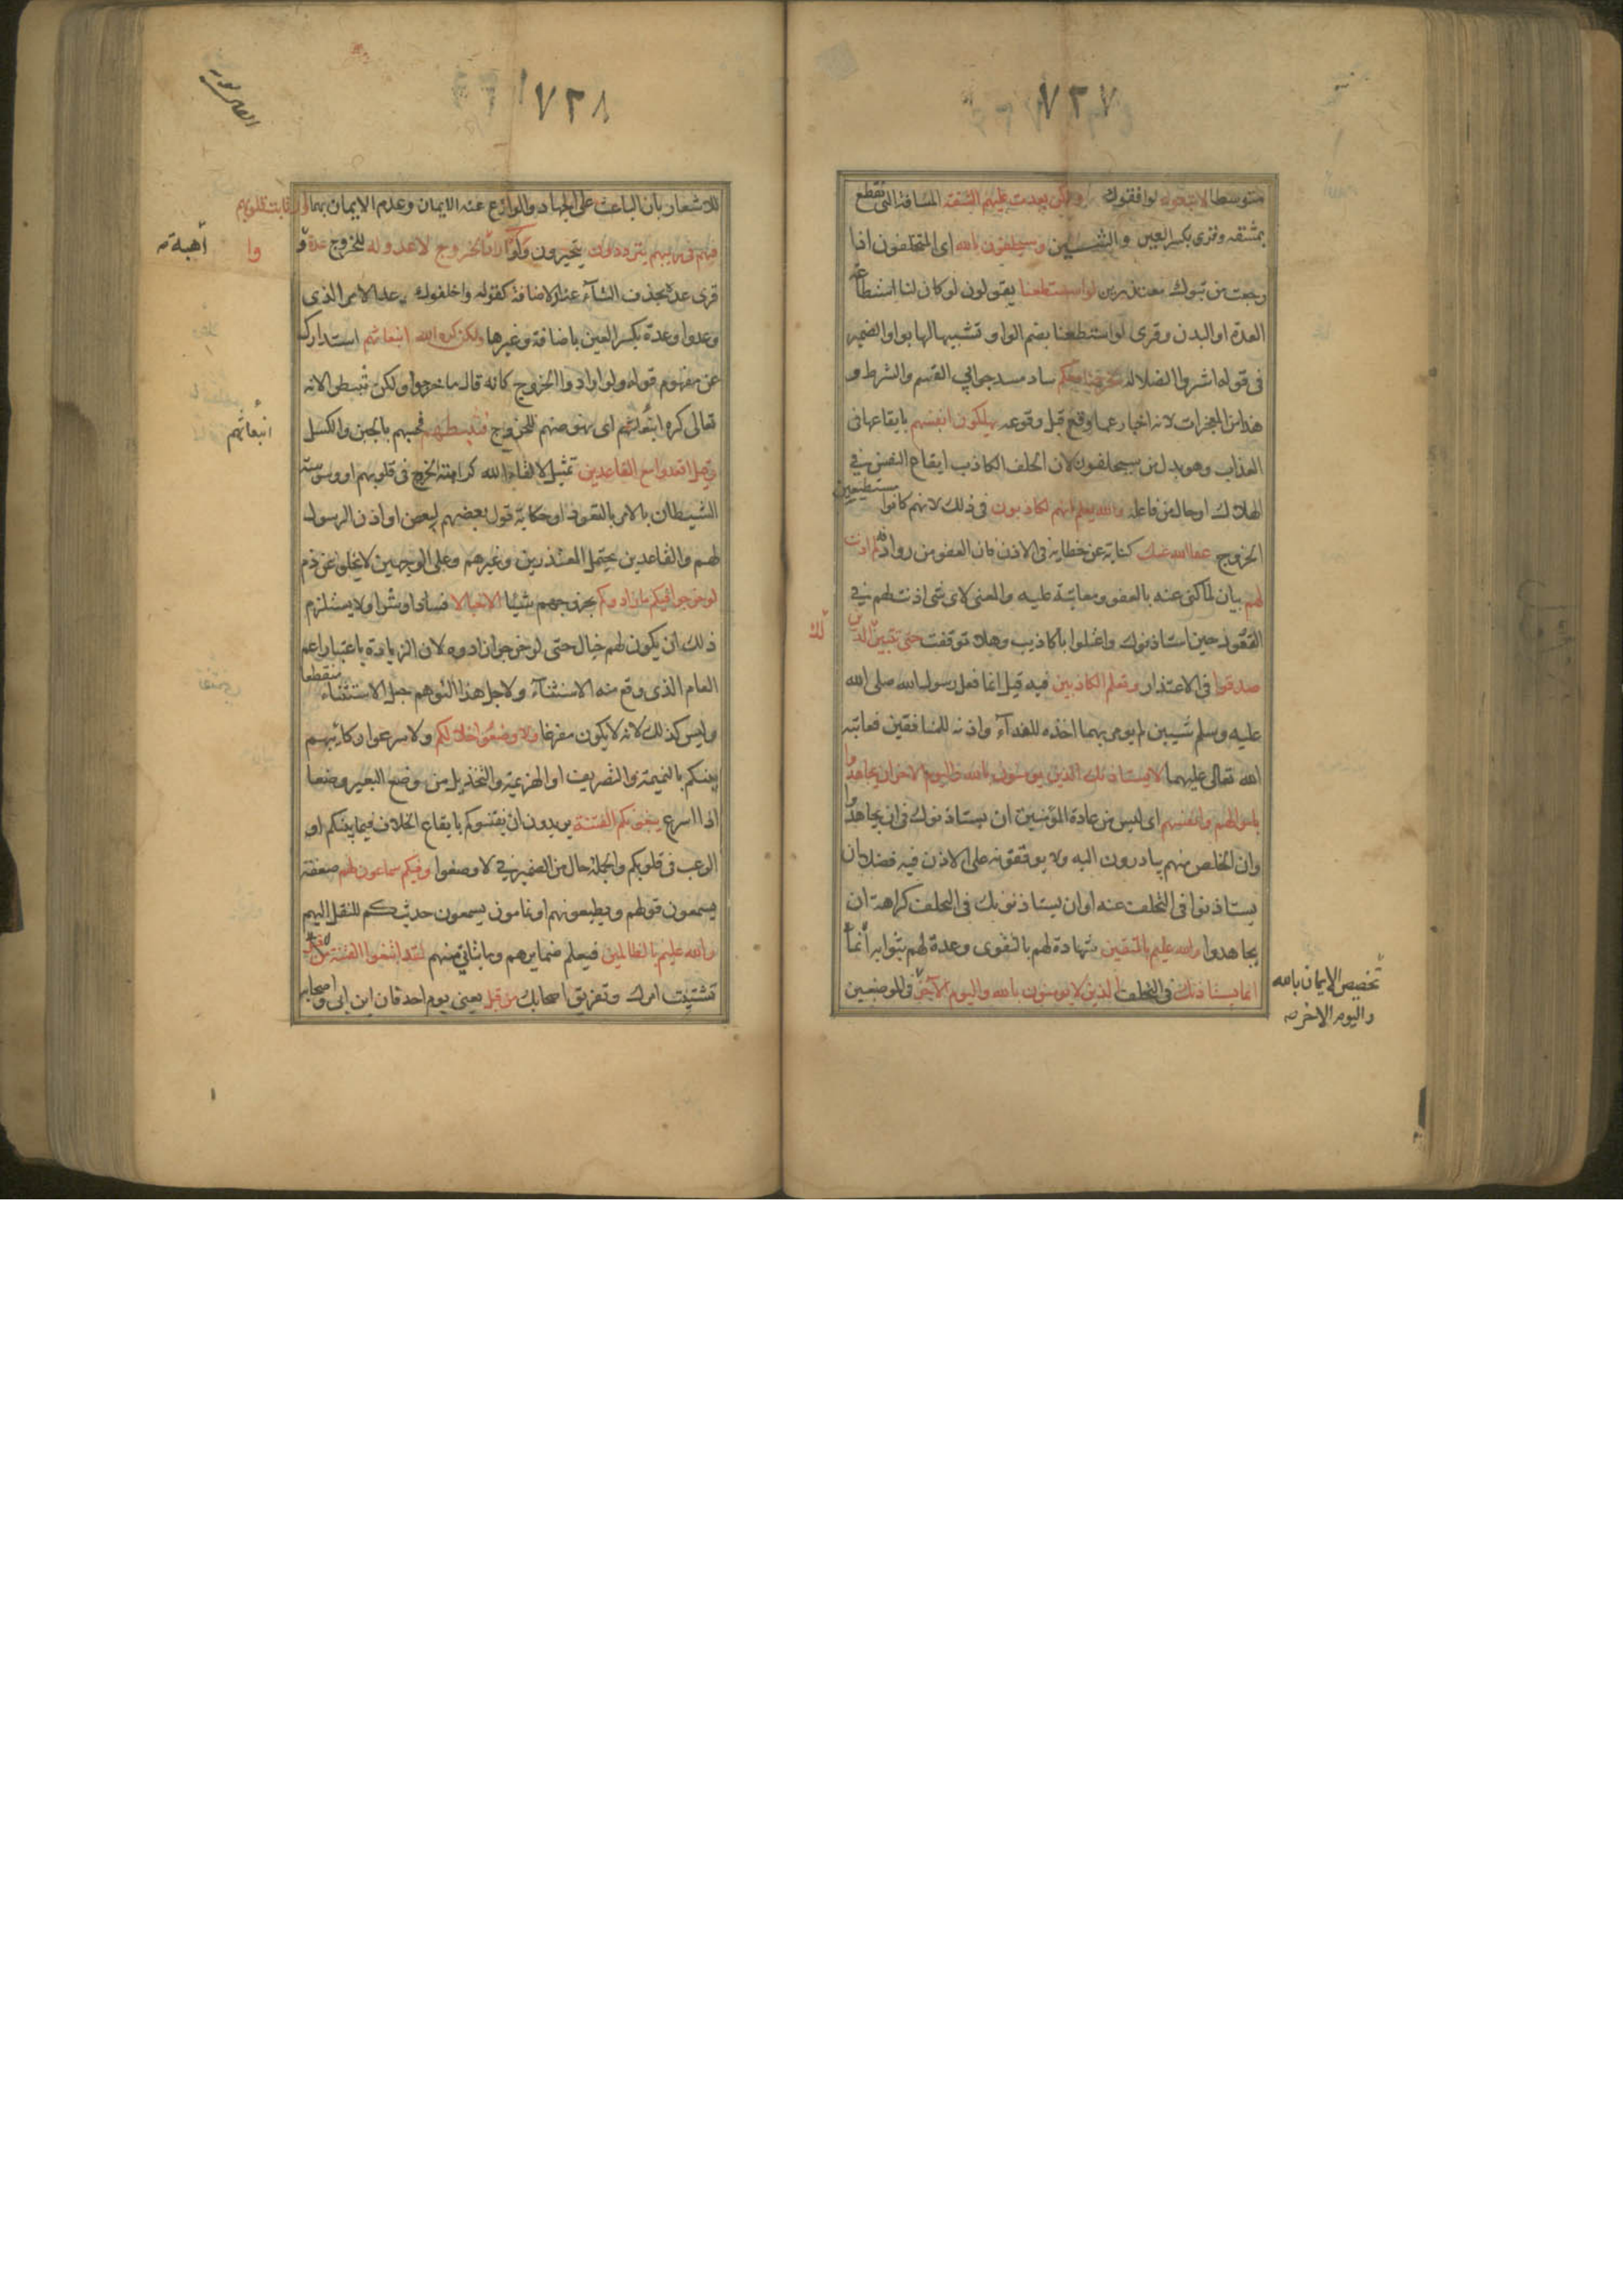 ٧٢٧
متوسطا لاتبعوك لوافقوك ولكن بعدت عليهم الشقة المسافة التى تقطع
بمشقة وقرى بكسر العين والشين وسيحلفون بالله اى المتخلفون اذا
رجعت من تبوك معتذرين لو استطعنا يقولون لو كان لنا استطاعة
العدة او البدن وقرى لو استطعنا بضم الواو تشبيها لها بواو الضمير
فى قوله اشتروا الضلالة لخرجنا معكم ساد مسد جوابي القسم والشرط و
هذا من المعجزات لانه اخبار عما وقع قبل وقوعه يهلكون انفسهم بايقاعها فى
العذاب وهو بدل من سيحلفون لان الحلف الكاذب ايقاع النفس في
الهلاك او حال من فاعله والله يعلم انهم لكاذبون فى ذلك لانهم كانوا مستطيعين
الخروج عفا الله عنك كناية عن خطايه فى الاذن فان العفو من روادفه لم اذنت
لهم بيان لما كنى عنه بالعفو ومعاتبة عليه والمعنى لاى شى اذنت لهم في
القعود حين استاذنوك واعتلوا باكاذيب وهلا توقفت حتى تتبين لك الذين
صدقوا فى الاعتذار وتعلم الكاذبين فيه قيل انما فعل رسول الله صلى الله
عليه وسلم شيبين لم يومر بهما اخذه للفدآء واذنه للمنافقين فعاتبه
الله تعالى عليهما لا يستاذنك الذين يومنون بالله واليوم الاخر ان يجاهدوا
باموالهم وانفسهم اى ليس من عادة المؤمنين ان يستاذنوك فى ان يجاهدوا
وان الخلص منهم يبادرون اليه ولا يوقفونه على الاذن فيه فضلا ان
يستاذنوا فى التخلف عنه او ان يستاذنونك فى التخلف كراهة ان
يجاهدوا والله عليم بالمتقين شهادة لهم بالتقوى وعدة لهم بثوابه انما
انما يستاذنك فى التخلف الذين لا يومنون بالله واليوم الآخر فى الموضعين
تخصيص الايمان بالله
واليوم الاخر صه
٧٢٨
للاشعار بان الباعث على الجهاد والوازع عنه الايمان وعدم الايمان بهما وارتابت قلوبهم
فهم فى ريبهم يترددون يتحيرون ولو ارادوا الخروج لاعدوا له للخروج عدة و
اهبة صه
وا
قرى عده بحذف التآء عند الاضافة كقوله واخلفوك عدا الامر الذى
وعدوا وعدة بكسر العين باضافة وغيرها ولكن كره الله انبعاثهم استدارك
عن مفهوم قوله ولو ارادوا الخروج كانه قال ما خرجوا ولكن تثبطوا لانه
تعالى كره انبعاثهم اى نهوضهم للخروج فثبطهم فحبسهم بالجبن والكسل
انبعاثهم
وقيل اقعدوا مع القاعدين تمثيل لالقاء الله كراهة الخروج فى قلوبهم او وسوسته
الشيطان بالامر بالقعود او حكاية قول بعضهم لبعض او اذن الرسول
لهم والقاعدين يحتمل المعذرين وغيرهم وعلى الوجهين لا يخلو عن ذم
لو خرجوا فيكم ما زادوكم بخروجهم شيئا الا خبالا فسادا وشرا ولا يستلزم
ذلك ان يكون لهم خبال حتى لو خرجوا زادوه لان الزيادة باعتبار اعم
العام الذى وقع منه الاستثنآء ولاجل هذا التوهم جعل الاستثناء منقطعا
وليس كذلك لانه لا يكون مفرغا ولا وضعوا خلالكم ولاسرعوا ركائبهم
بينكم بالنميمة والتضريب او الهزيمة والتخذيل من وضع البعير وضعا
اذا اسرع يبغونكم الفتنة يريدون ان يفتنوكم بايقاع الخلاف فيما بينكم او
الرعب فى قلوبكم والجملة حال من الضمير في لاوضعوا وفيكم سماعون لهم ضعفة
يسمعون قولهم ويطيعونهم او نمامون يسمعون حديثكم للنقل اليهم
والله عليم بالظالمين فيعلم ضمايرهم وما يتاتى منهم لقد ابتغوا الفتنة
تشتيت امرك وتفريق اصحابك من قبل يعنى يوم احد فان ابن ابى واصحابه